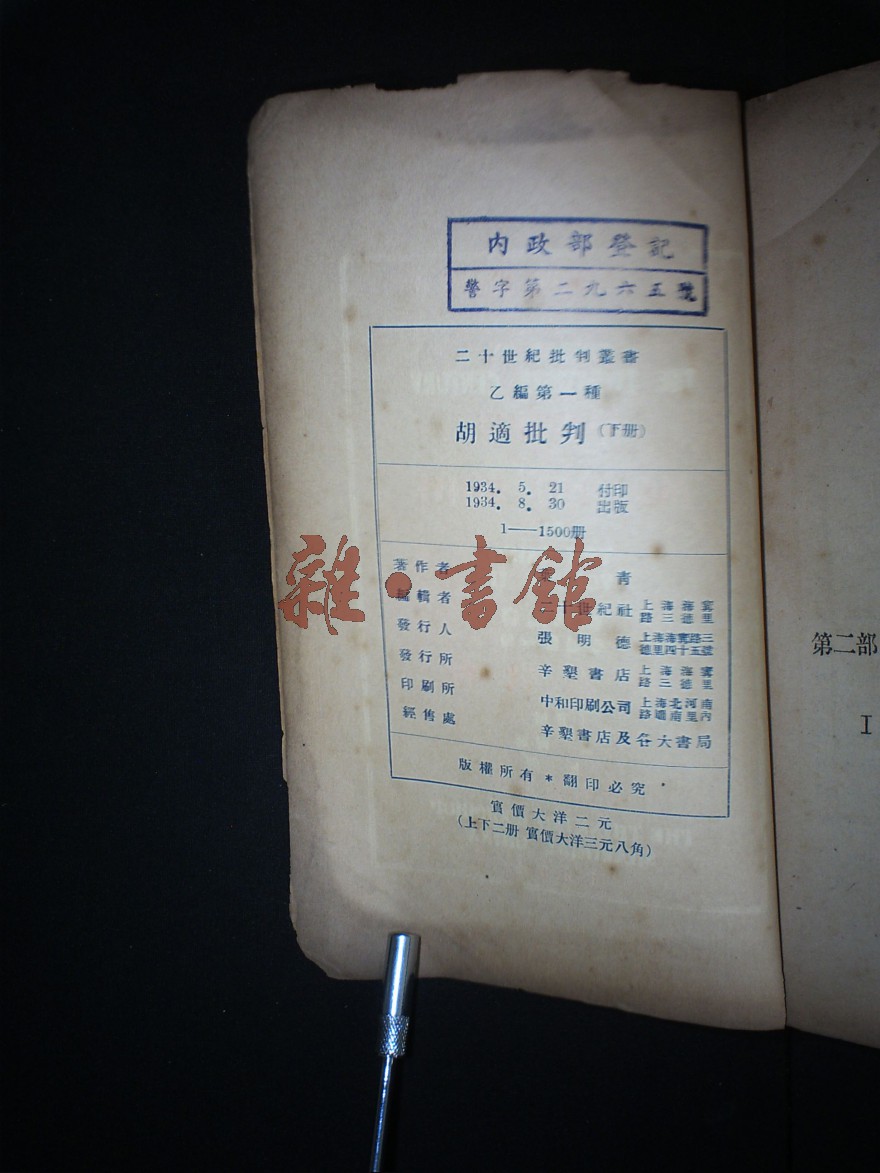 內政部登記
警字第二九六五號
二十世紀批判叢書
乙編第一種
胡適批判（下册）
1934. 5. 21 付印
1934. 8. 30 出版
1——1500册
著作者 青
編輯者 二十世紀社 上海海寗路三德里
發行人 張明德 上海海寗路三德里四十五號
發行所 辛墾書店 上海海寗路三德里
印刷所 中和印刷公司 上海北河南路 南里內
經售處 辛墾書店及各大書局
版權所有＊翻印必究
實價大洋二元
（上下二册 實價大洋三元八角）
第二部
I
雜·書館